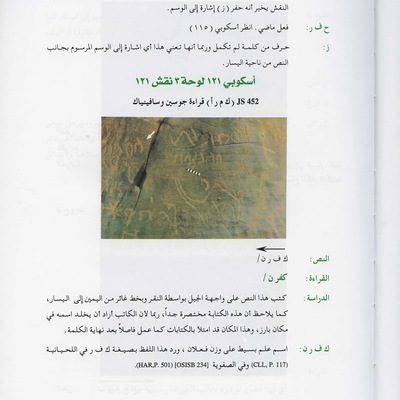 النقش يخبر أنه حفر (ز) إشارة إلى الوسم.
ح ف ر: فعل ماضي. انظر أسكوبي (١١٥)
ز: حرف من كلمة لم تكمل وربما أنها تعني هذا أي اشارة إلى الوسم المرسوم بجانب
النص من ناحية اليسار.
أسكوبي ١٢١ لوحة ٣ نقش ١٢١
JS 452 (ك م ر أ) قراءة جوسين وسافينياك
النص: ك ف ر ن/
القراءة: كفر ن/
الدراسة: كتب هذا النص على واجهة الجبل بواسطة النقر وبخط غائر من اليمين إلى اليسار،
كما يلاحظ أن هذه الكتابة مختصرة جداً، ربما لان الكاتب أراد أن يخلد اسمه في
مكان بارز، وهذا المكان قد امتلأ بالكتابات كما عمل فاصلاً بعد نهاية الكلمة.
ك ف ر ن: اسم علم بسيط على وزن فعلان ، ورد هذا اللفظ بصيغة ك ف ر في اللحيانية
(CLL, P. 117) وفي الصفوية [OSISB 234] (HAR,P. 501).